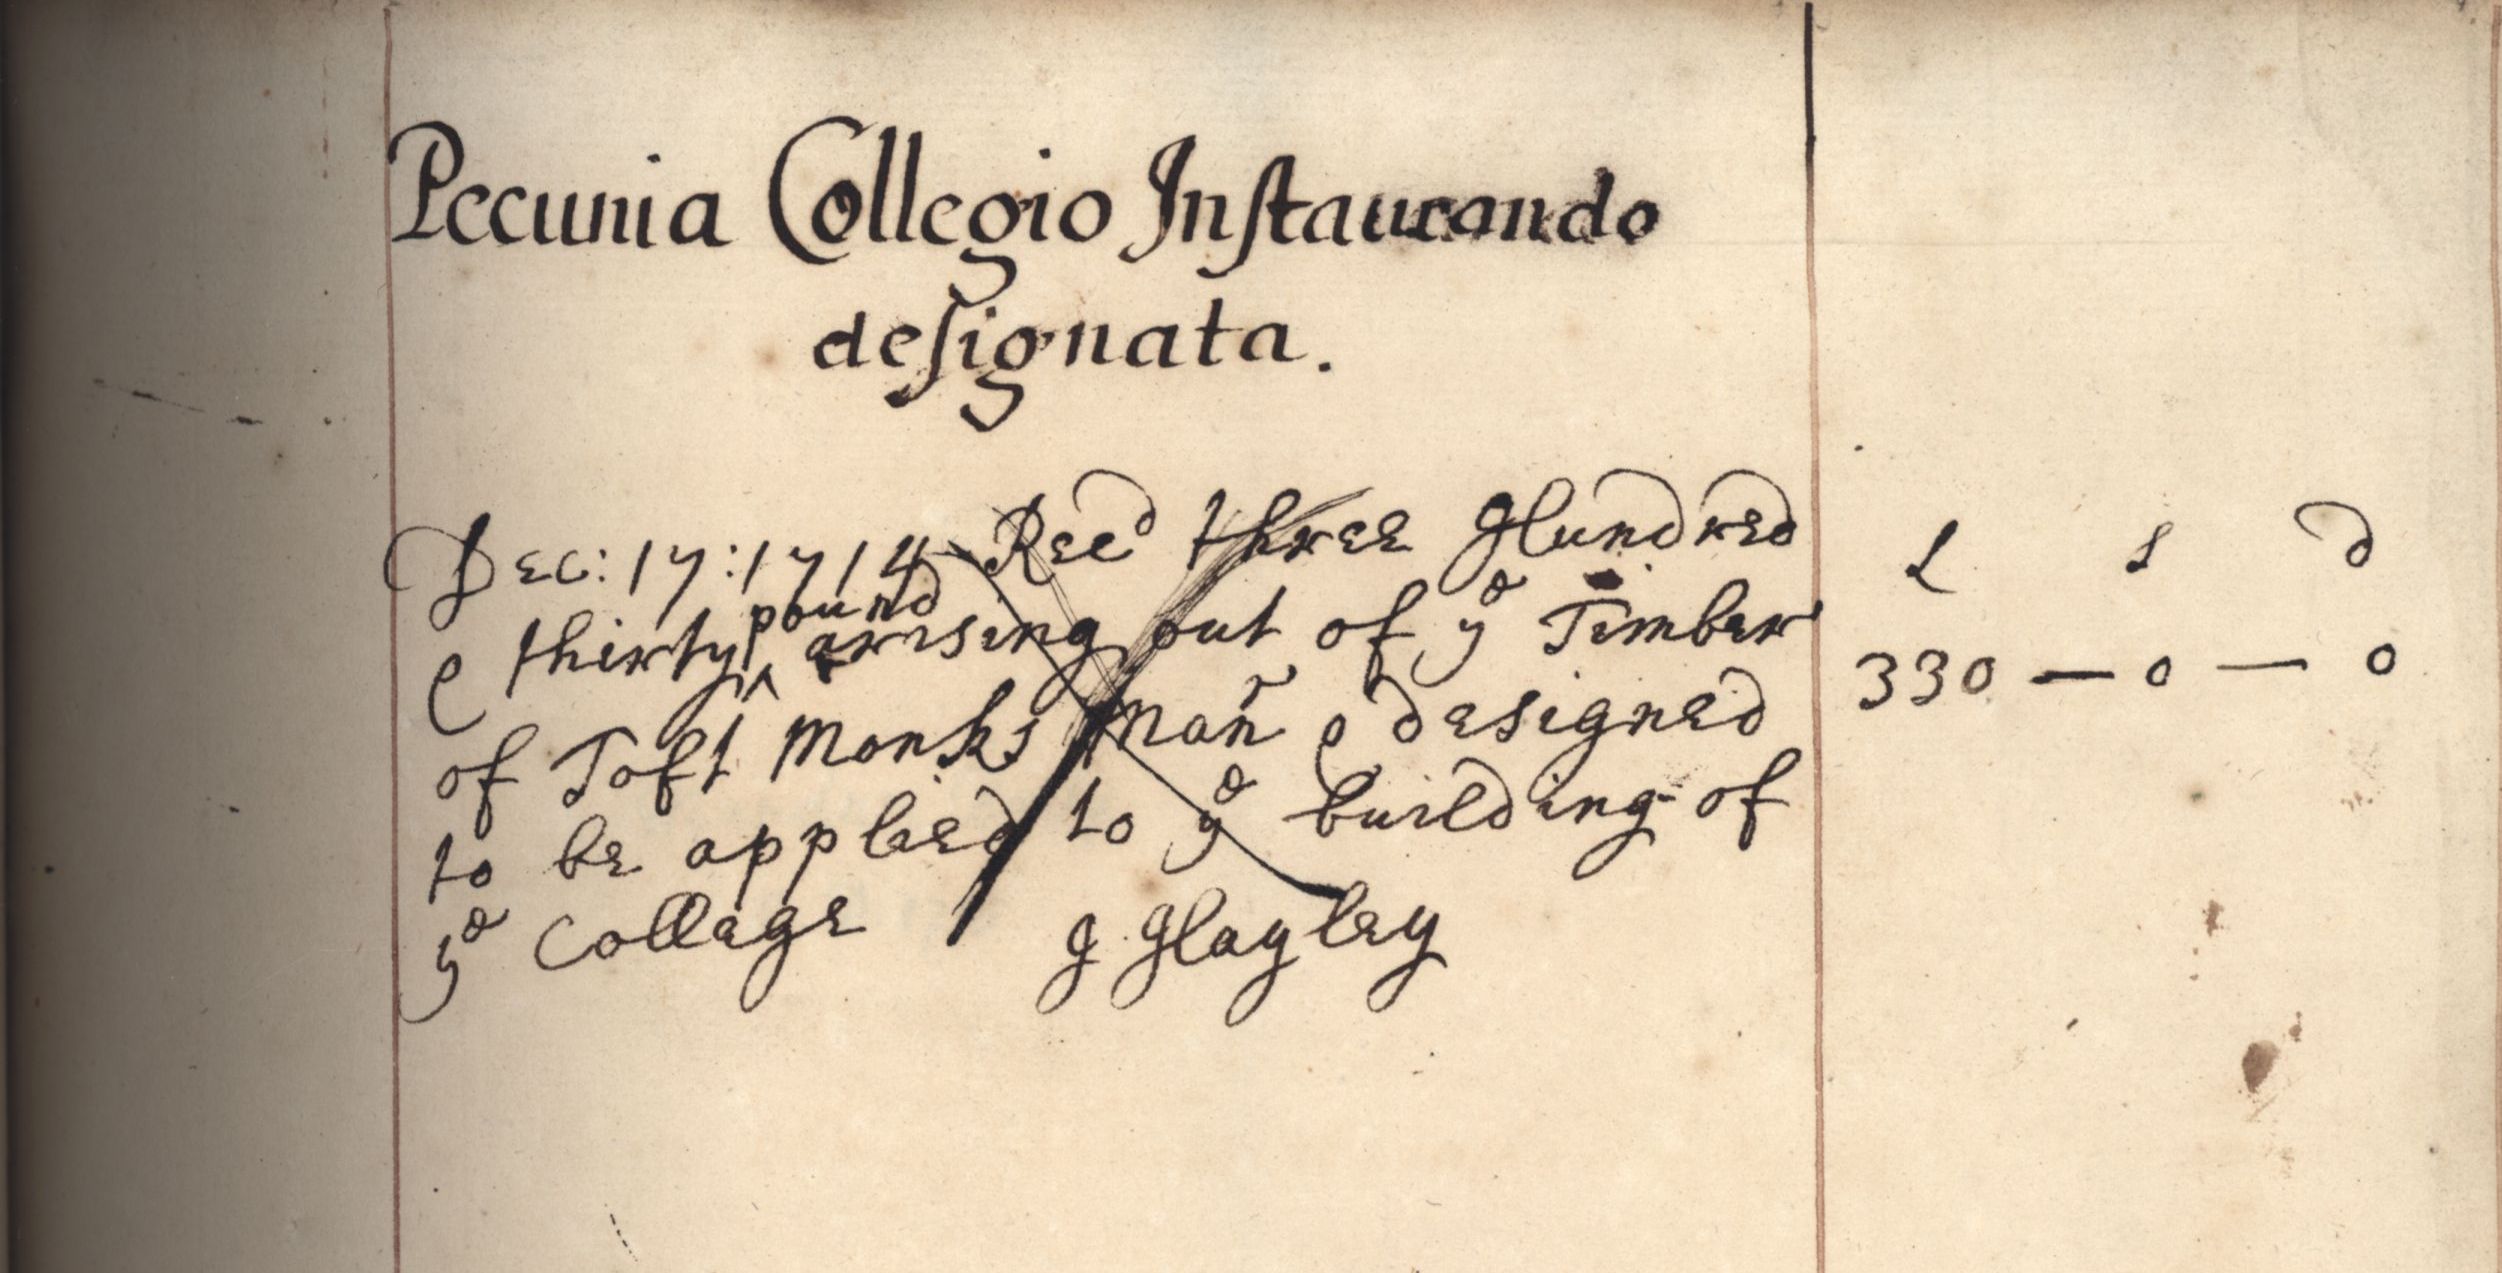 Pecunia Collegio Instaurando
designata.
Dec: 17: 1714 Recd three Hundred
L s d
& thirty pound arising out of ye Timber
330 — 0 — 0
of Toft Monks Mañr & designed
to be applied to ye building of
ye Collage J Hayley